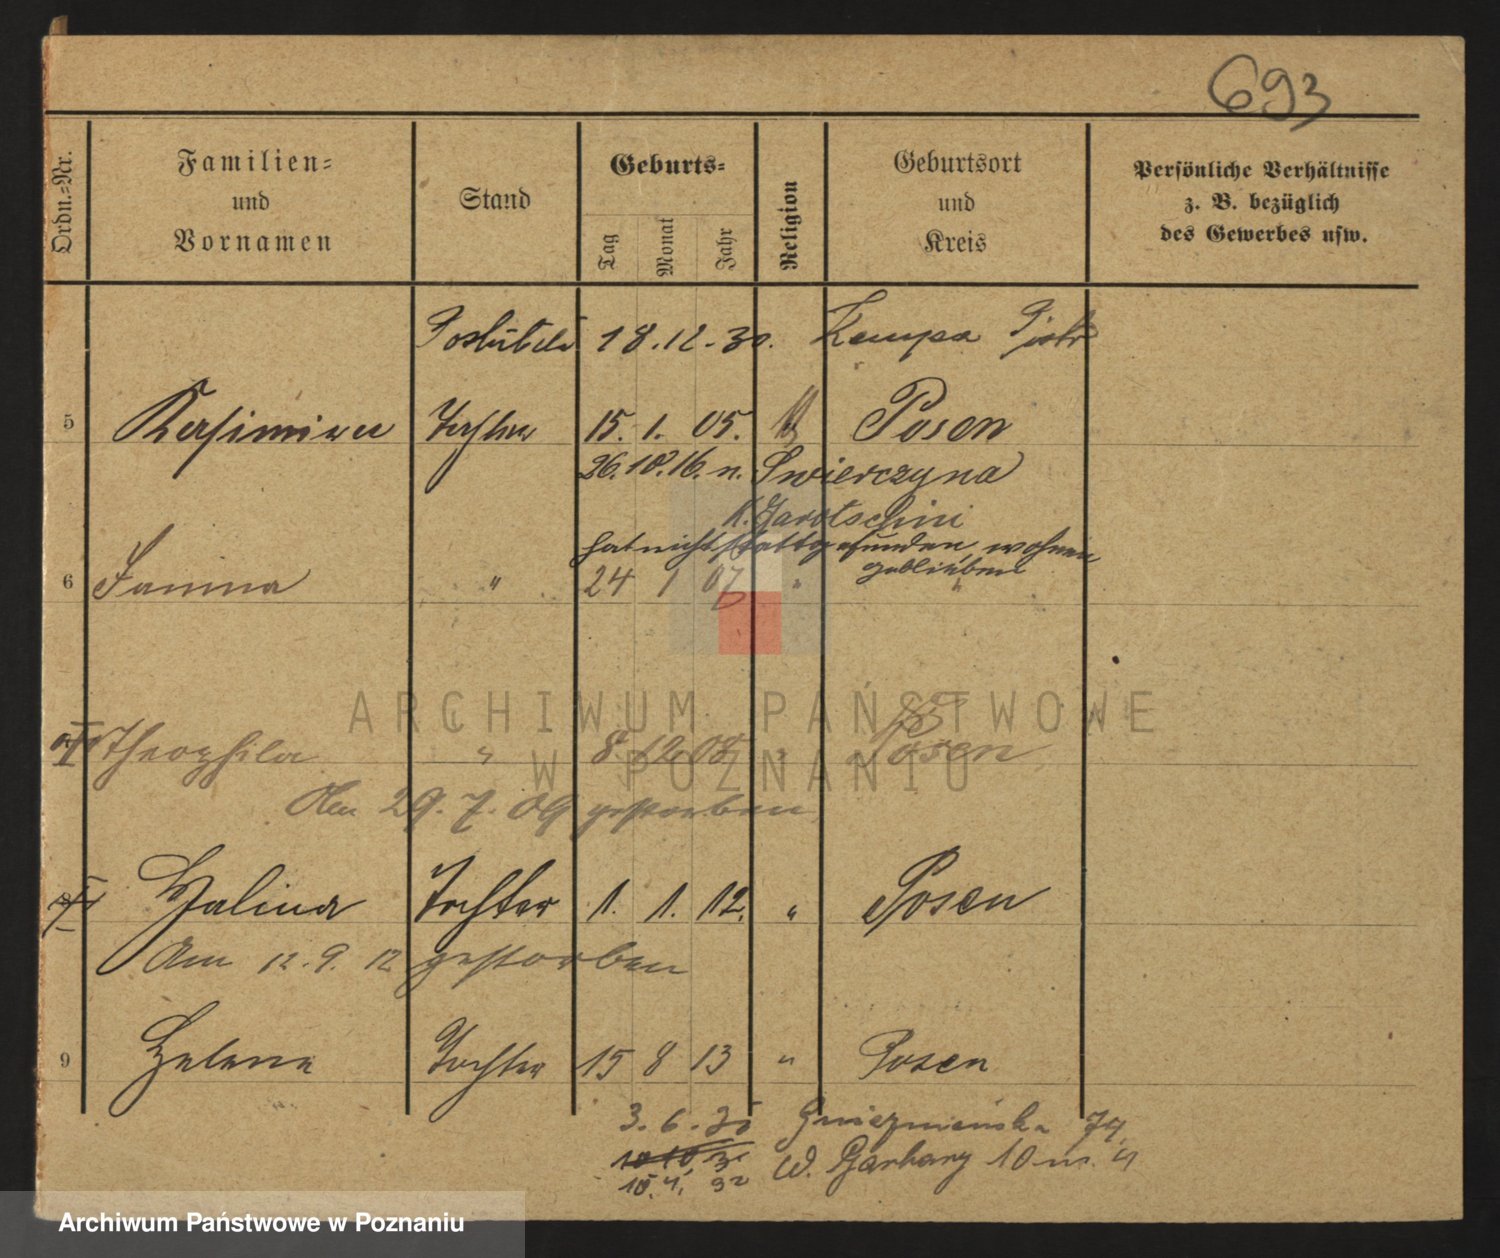 693
Ordn.-Nr.
Familien- und Vornamen
Stand
Geburts-
Tag
Monat
Jahr
Religion
Geburtsort und Kreis
Persönliche Verhältnisse z. B. bezüglich des Gewerbes usw.
18.12.30. Kempa Piotr
5 Kasimira Tochter 15. 1. 05. Posen
26.10.16. n. Swierczyna
K. Jarotschin
hat nicht stattgefunden, wohnen
geblieben
6 Janina " 24 1 07 " "
Theophila " 8. 12 08 " Posen
Am 29. 7. 09 gestorben
8 Halina Tochter 1. 1. 12. " Posen
Am 12. 9. 12 gestorben
9 Helene Tochter 15 8 13 " Posen
3. 6. Gnieznieńska 74
10 10 3
10. 4. 32 W. Garbary 10 m. 4
ARCHIWUM PAŃSTWOWE
W POZNANIU
Archiwum Państwowe w Poznaniu